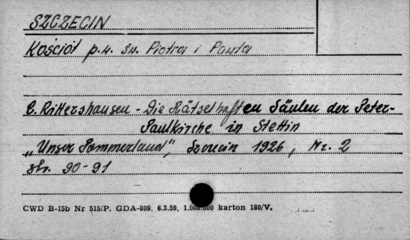 SZCZECIN
Kościół p.w. św. Piotra i Pawła
E. Rittershausen - Die Rätselhaften Säulen der Peter-
Paulkirche in Stettin
„Unser Pommerland", Szczecin 1926, Nr. 2
str. 90-91
CWD B-15b Nr 515/P. GDA-809. 6.3.59, 1.000.000 karton 180/V.